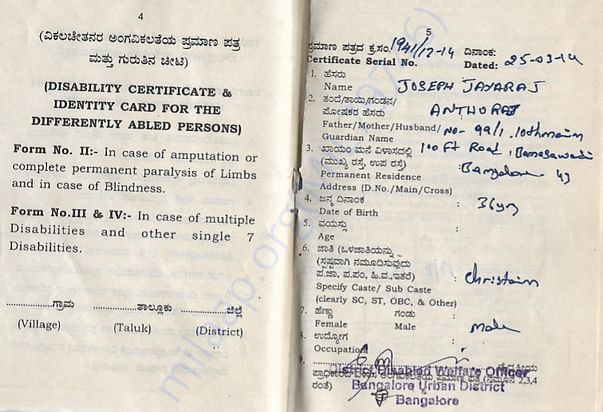 4
(ವಿಕಲಚೇತನರ ಅಂಗವಿಕಲತೆಯ ಪ್ರಮಾಣ ಪತ್ರ
ಮತ್ತು ಗುರುತಿನ ಚೀಟಿ)
(DISABILITY CERTIFICATE &
IDENTITY CARD FOR THE
DIFFERENTLY ABLED PERSONS)
Form No. II:- In case of amputation or
complete permanent paralysis of Limbs
and in case of Blindness.
Form No.III & IV:- In case of multiple
Disabilities and other single 7
Disabilities.
............ಗ್ರಾಮ ............ತಾಲ್ಲೂಕು ............ಜಿಲ್ಲೆ
(Village) (Taluk) (District)
5
ಪ್ರಮಾಣ ಪತ್ರದ ಕ್ರಸಂ: 1941/12-14 ದಿನಾಂಕ:
Certificate Serial No. Dated: 25-03-14
1. ಹೆಸರು
Name JOSEPH JAYARAJ
2. ತಂದೆ/ತಾಯಿ/ಗಂಡನ/
ಪೋಷಕರ ಹೆಸರು ANTHORAJ
Father/Mother/Husband/ No- 99/1, 10thmain
Guardian Name
3. ಖಾಯಂ ಮನೆ ವಿಳಾಸದಲ್ಲಿ 100 Ft Road, Banasawadi
(ಮುಖ್ಯ ರಸ್ತೆ, ಉಪ ರಸ್ತೆ)
Permanent Residence Bangalore 43
Address (D.No./Main/Cross)
4. ಜನ್ಮ ದಿನಾಂಕ : 36yrs
Date of Birth
5. ವಯಸ್ಸು :
Age
6. ಜಾತಿ (ಒಳಜಾತಿಯನ್ನು
(ಸ್ಪಷ್ಟವಾಗಿ ನಮೂದಿಸುವುದು
ಪ.ಜಾ, ಪ.ಪಂ, ಹಿ.ವ.,ಇತರೆ) : christain
Specify Caste/ Sub Caste
(clearly SC, ST, OBC, & Other)
7. ಹೆಣ್ಣು ಗಂಡು :
Female Male male
8. ಉದ್ಯೋಗ :
Occupation
9.
District Disabled Welfare Officer
Bangalore Urban District
Bangalore
milaap.org